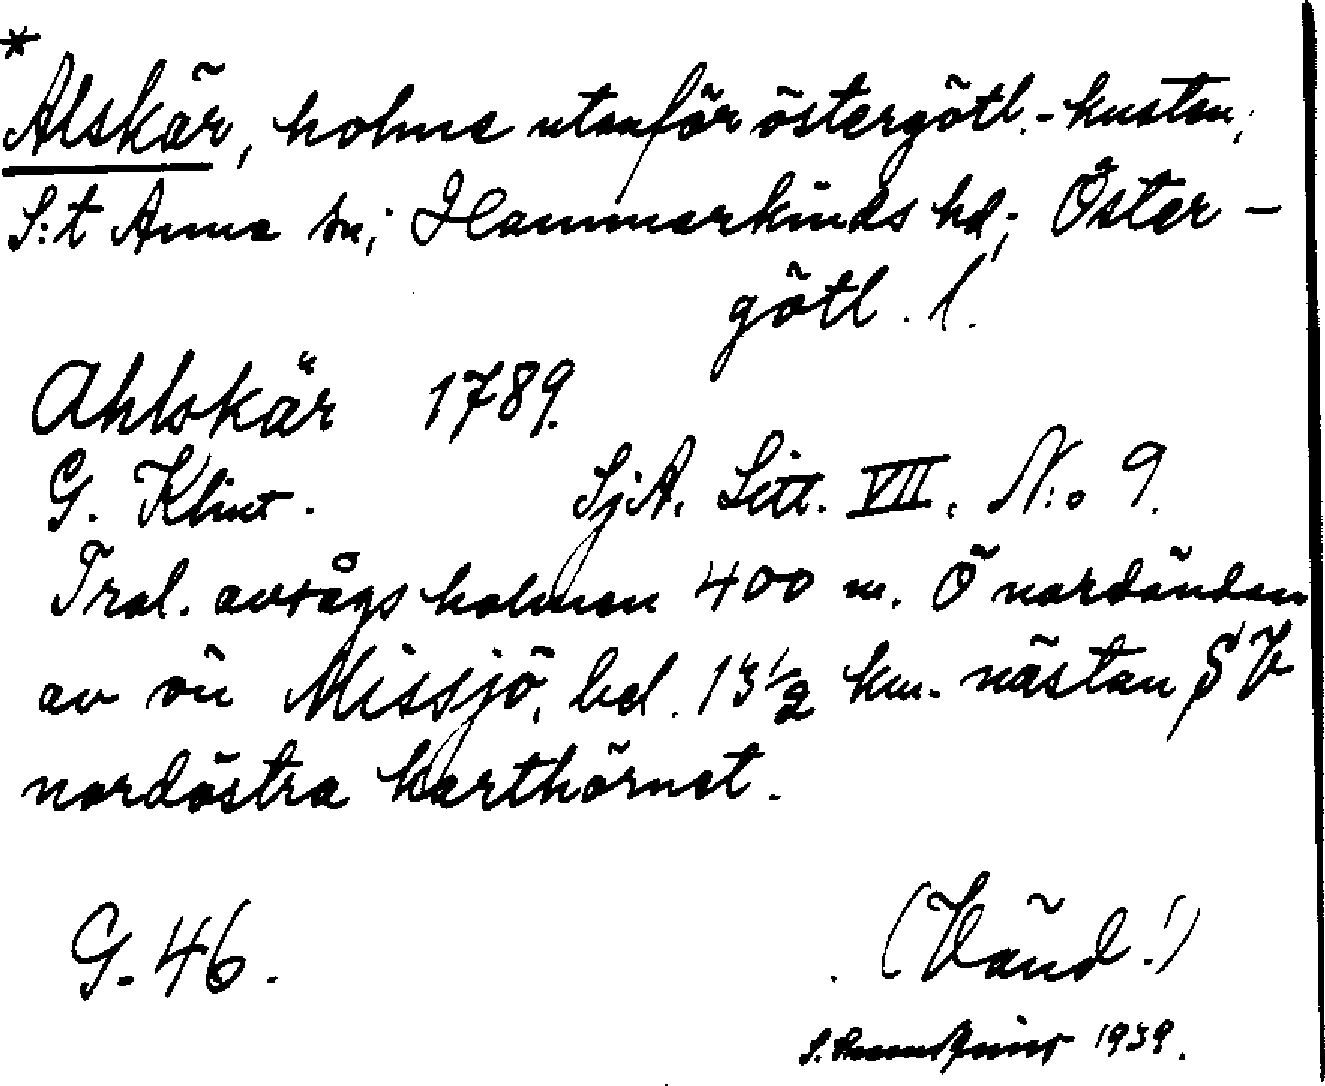 *
Alskär, holme utanför östergötl.-kusten;
S:t Anna sn; Hammarkinds hd; Öster-
götl. l.
Ahlskär 1789.
G. Klint. SjA. Litt. VII. N:o 9.
Trol. avsågs holmen 400 m. Ö nordändan
av ön Missjö, bel. 13 1/2 km. nästan SV
nordöstra karthörnet.
G. 46. (Vänd!)
1939.